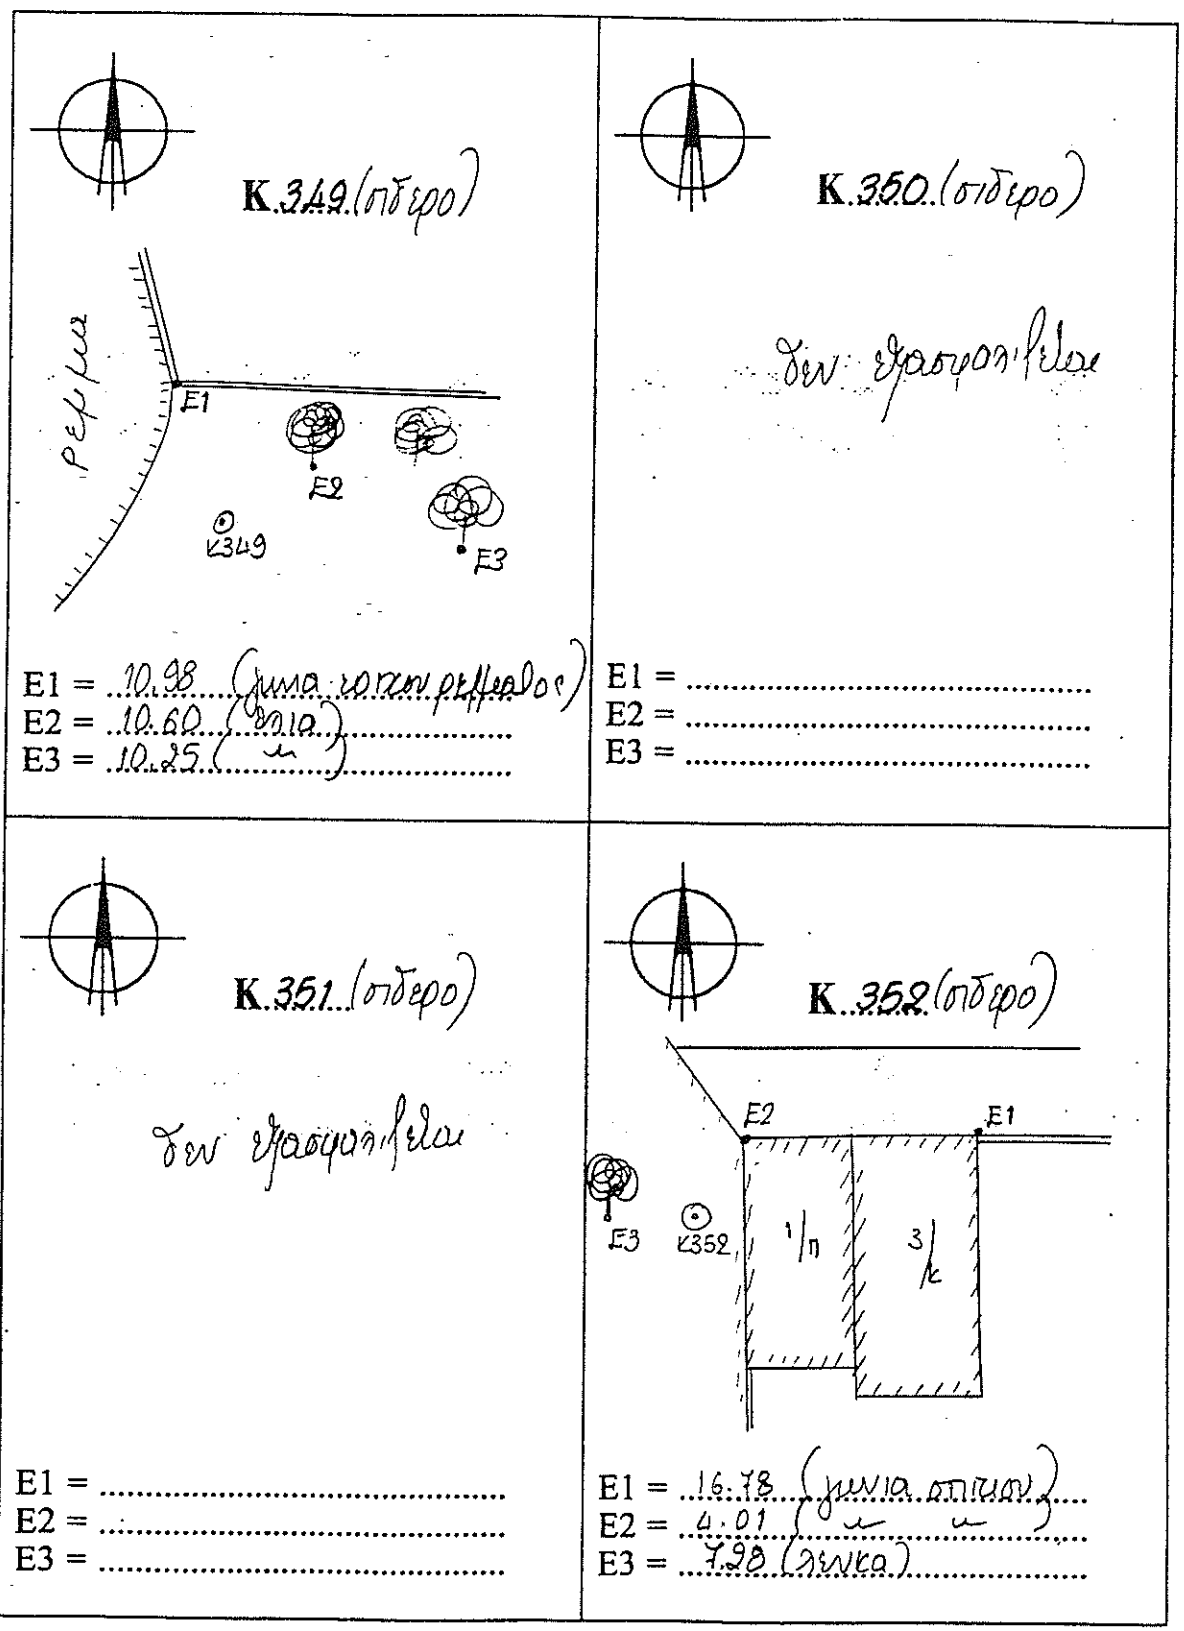 Κ.349.(σιδερο)
ρεμμα
Ε1
Ε2
Κ349
Ε3
Ε1 = 10.98 (γωνια τοιχου ρεμματος)
Ε2 = 10.60 (ελια)
Ε3 = 10.25 ( 〃 )
Κ.350.(σιδερο)
δεν εξασφαλιζεται
Ε1 =
Ε2 =
Ε3 =
Κ.351.(σιδερο)
δεν εξασφαλιζεται
Ε1 =
Ε2 =
Ε3 =
Κ.352(σιδερο)
Ε2
Ε1
Ε3
Κ352
1/π
3/κ
Ε1 = 16.78 (γωνια σπιτιου)
Ε2 = 4.01 ( 〃 〃 )
Ε3 = 7.28 (λευκα)